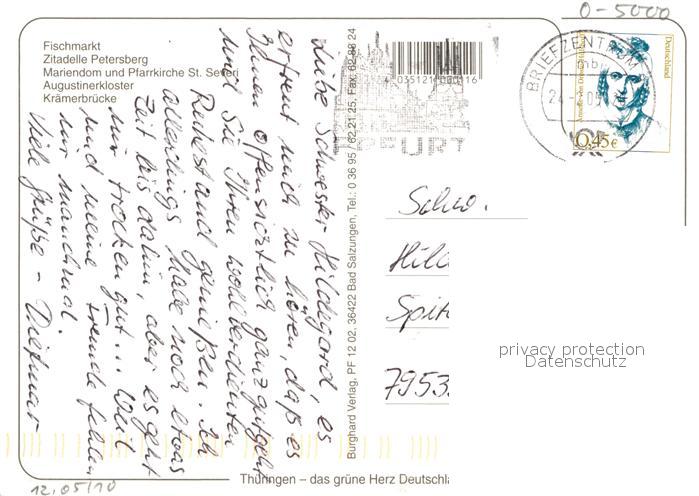 0-5000
Fischmarkt
Zitadelle Petersberg
Mariendom und Pfarrkirche St. Severi
Augustinerkloster
Krämerbrücke
4 035121 000116
ERFURT
BRIEFZENTRUM
mb
Deutschland
Annette von Droste-Hülshoff
0,45 €
Liebe Schwester Hildegard, es
erfreut mich zu hören, daß es
Ihnen offensichtlich ganz gut geht
und Sie Ihren wohlverdienten
Ruhestand genießen. Ich
allerdings habe noch etwas
Zeit bis dahin, aber es geht
mir trocken gut... Weil
und meine Freunde fehlen
mir manchmal.
Viele Grüße - Dietmar
Burghard Verlag, PF 12 02, 36422 Bad Salzungen, Tel.: 0 36 95 / 62 21 25, Fax: 62 88 24
Schw.
Hild
Spit
7953
privacy protection
Datenschutz
Thüringen – das grüne Herz Deutschla
12.05/10